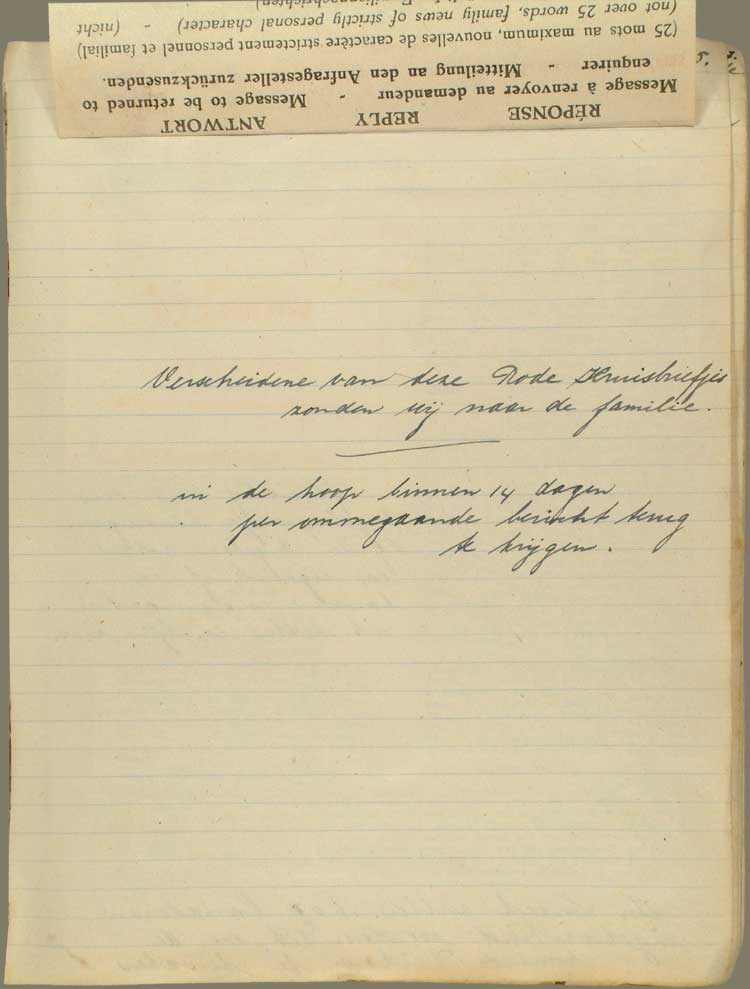 RÉPONSE REPLY ANTWORT
Message à renvoyer au demandeur - Message to be returned to
enquirer - Mitteilung an den Anfragesteller zurückzusenden.
(25 mots au maximum, nouvelles de caractère strictement personnel et familial)
(not over 25 words, family news of strictly personal character) - (nicht
5.
Verscheidene van deze Rode Kruisbriefjes
zonden wij naar de familie.
in de hoop binnen 14 dagen
per ommegaande bericht terug
te krijgen.